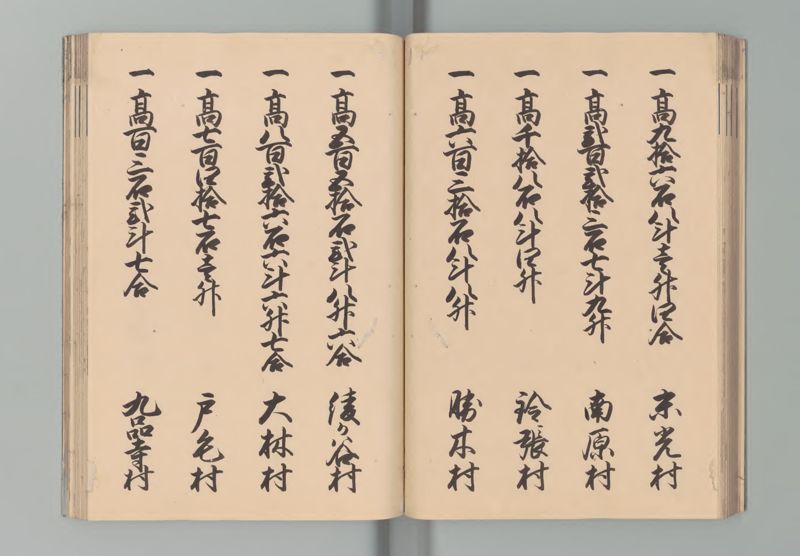 一 高九拾六石八斗壱升四合 末光村
一 高弐百弐拾三石七斗九升 南原村
一 高千拾八石八斗四升 鈴張村
一 高六百三拾石八斗八升 勝木村
一 高五百五拾石弐斗八升六合 綾ヶ谷村
一 高八百弐拾六石六斗六升七合 大林村
一 高七百四拾七石壱升 村
一 高百三石弐斗七合 九品寺村